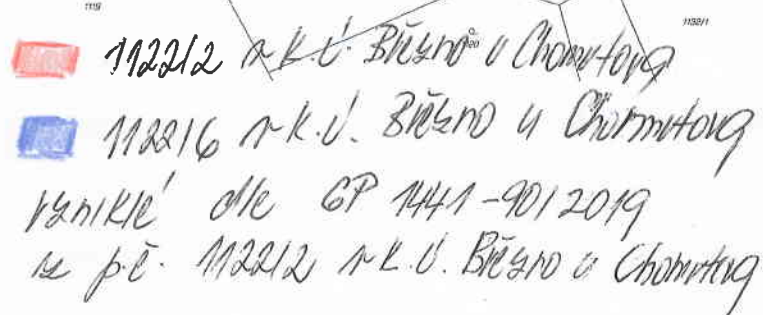 1119
1132/1
1122/2 v k.ú. Březno u Chomutova
1122/6 v k.ú. Březno u Chomutova
vzniklé dle GP 1441-90/2019
z p.č. 1122/2 v k.ú. Březno u Chomutova